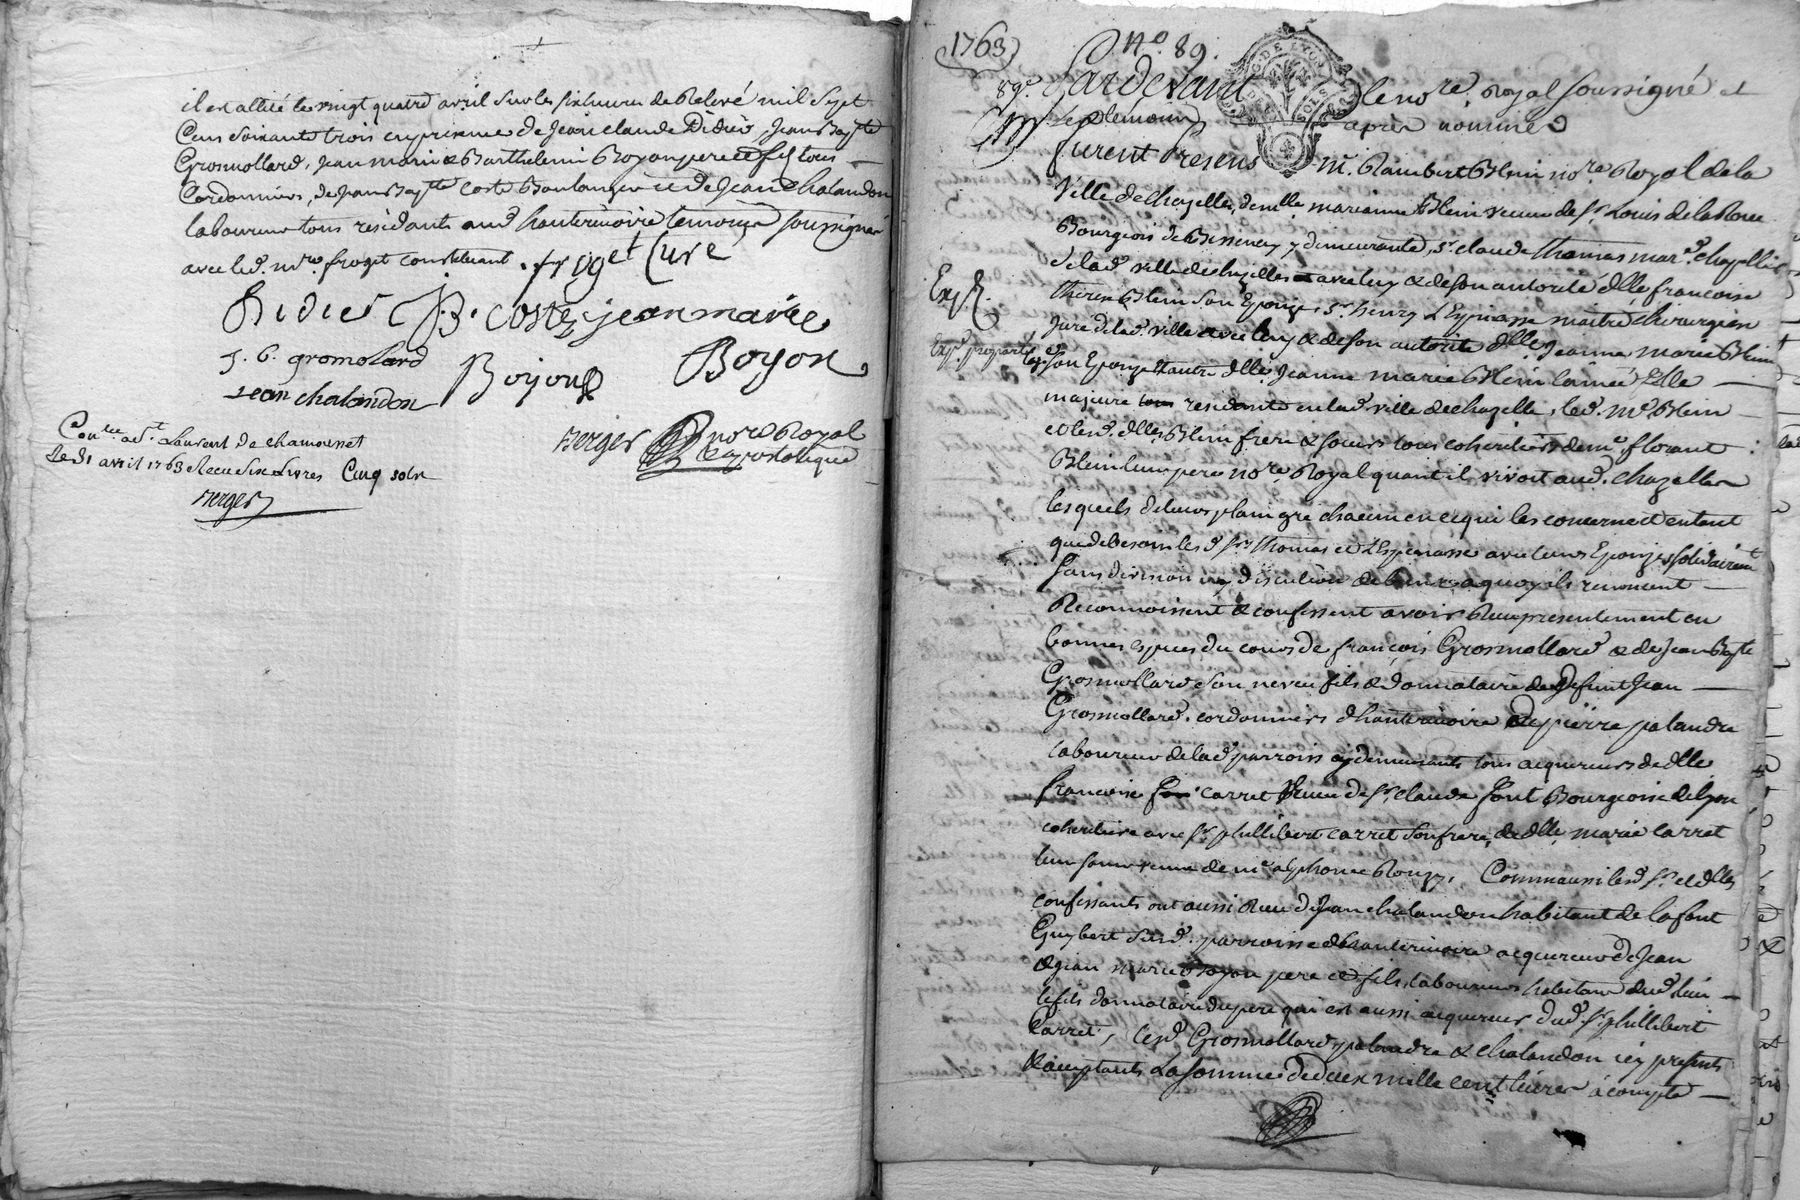 il en allié le vingt quatre avril sur les six heures de Relevé mil sept
Cens soixante trois en presence de Jean claude Didier, Jean Bapte
Grosmollard, Jean marie & Barthelemi Boyon pere et fils tous
Cordonniers, de Jean Bapte Coste Boulanger et de Jean Chalandon
laboureur tous residants aud. hauterivoire temoins soussignés
avec led. mre. froget constituant . froget Curé
Didier J. B. Coste jean marie
J. b. gromolard Boyon Boyon
Jean chalandon
Berger nore Royal & apostolique
Conlée à St. Laurent de chamousset
Le 31 avril 1763 Reçu Six Livres Cinq sols
Berger
1763
No. 89.
89e. Pardevant le nore. Royal soussigné et
les temoins après nommés
furent Presens Me. Rambert Blein nore Royal de la
Ville de Chazelles, demlle marianne Blein veuve de Sr. Louis de la Roue
Bourgeois de Bessenay y demeurante, Sr. claude thomas mard. chapellier
de lad. ville de chazelles avec luy & de son autorité dlle francoise
therese Blein son Epouse, Sr. henry L'Espinasse maitre chirurgien
Juré de lad. ville avec luy & de son autorité dlle Jeanne marie Blein
son Epouse & autre dlle Jeanne marie Blein lainée fille
majeure residante en lad. ville de chazelles, led. Me Blein
et lesd. dlles Blein frere & soeurs tous coheritiers de me. florant
Blein leur pere nore. Royal quant il vivoit aud. chazelles
lesquels de leurs plain gré chacun en ce qui les concerne et entant
que de besoin lesd. Srs thomas et L'Espinasse avec leurs Epouses solidairemt
sans division ny discution de biens a quoy ils renoncent
Reconnoissent & confessent avoir Reçu presentement en
bonnes especes du cours de françois Grosmollard & de Jean Bapte
Grosmollard son neveu fils & donnataire de defunt Jean
Grosmollard, cordonniers d'hauterivoire & de pierre palandre
laboureur de lad. parroisse y demeurants tous acquereurs de dlle
francoise carret Veuve de Sr. claude font Bourgeoise de Lyon
coheritiere avec Sr. phillibert carret son frere, & de dlle. marie carret
leur soeur veuve de me alphonce Rougy. Comme aussi lesd. Sr. et dlles
confessants ont aussi Reçu de Jean chalandon habitant de la font
Guybert Susd. parroisse d'hauterivoire acquereur de Jean
& Jean marie Boyon pere et fils, laboureurs habitans dud. lieu
le fils donnataire du pere qui est aussi acquereur dud. Sr. phillibert
Carret, lesd. Grosmollard, palandre & chalandon icy presents
& acceptants La somme de deux mille cent livres à compte
Exp.
Exp. pr partie